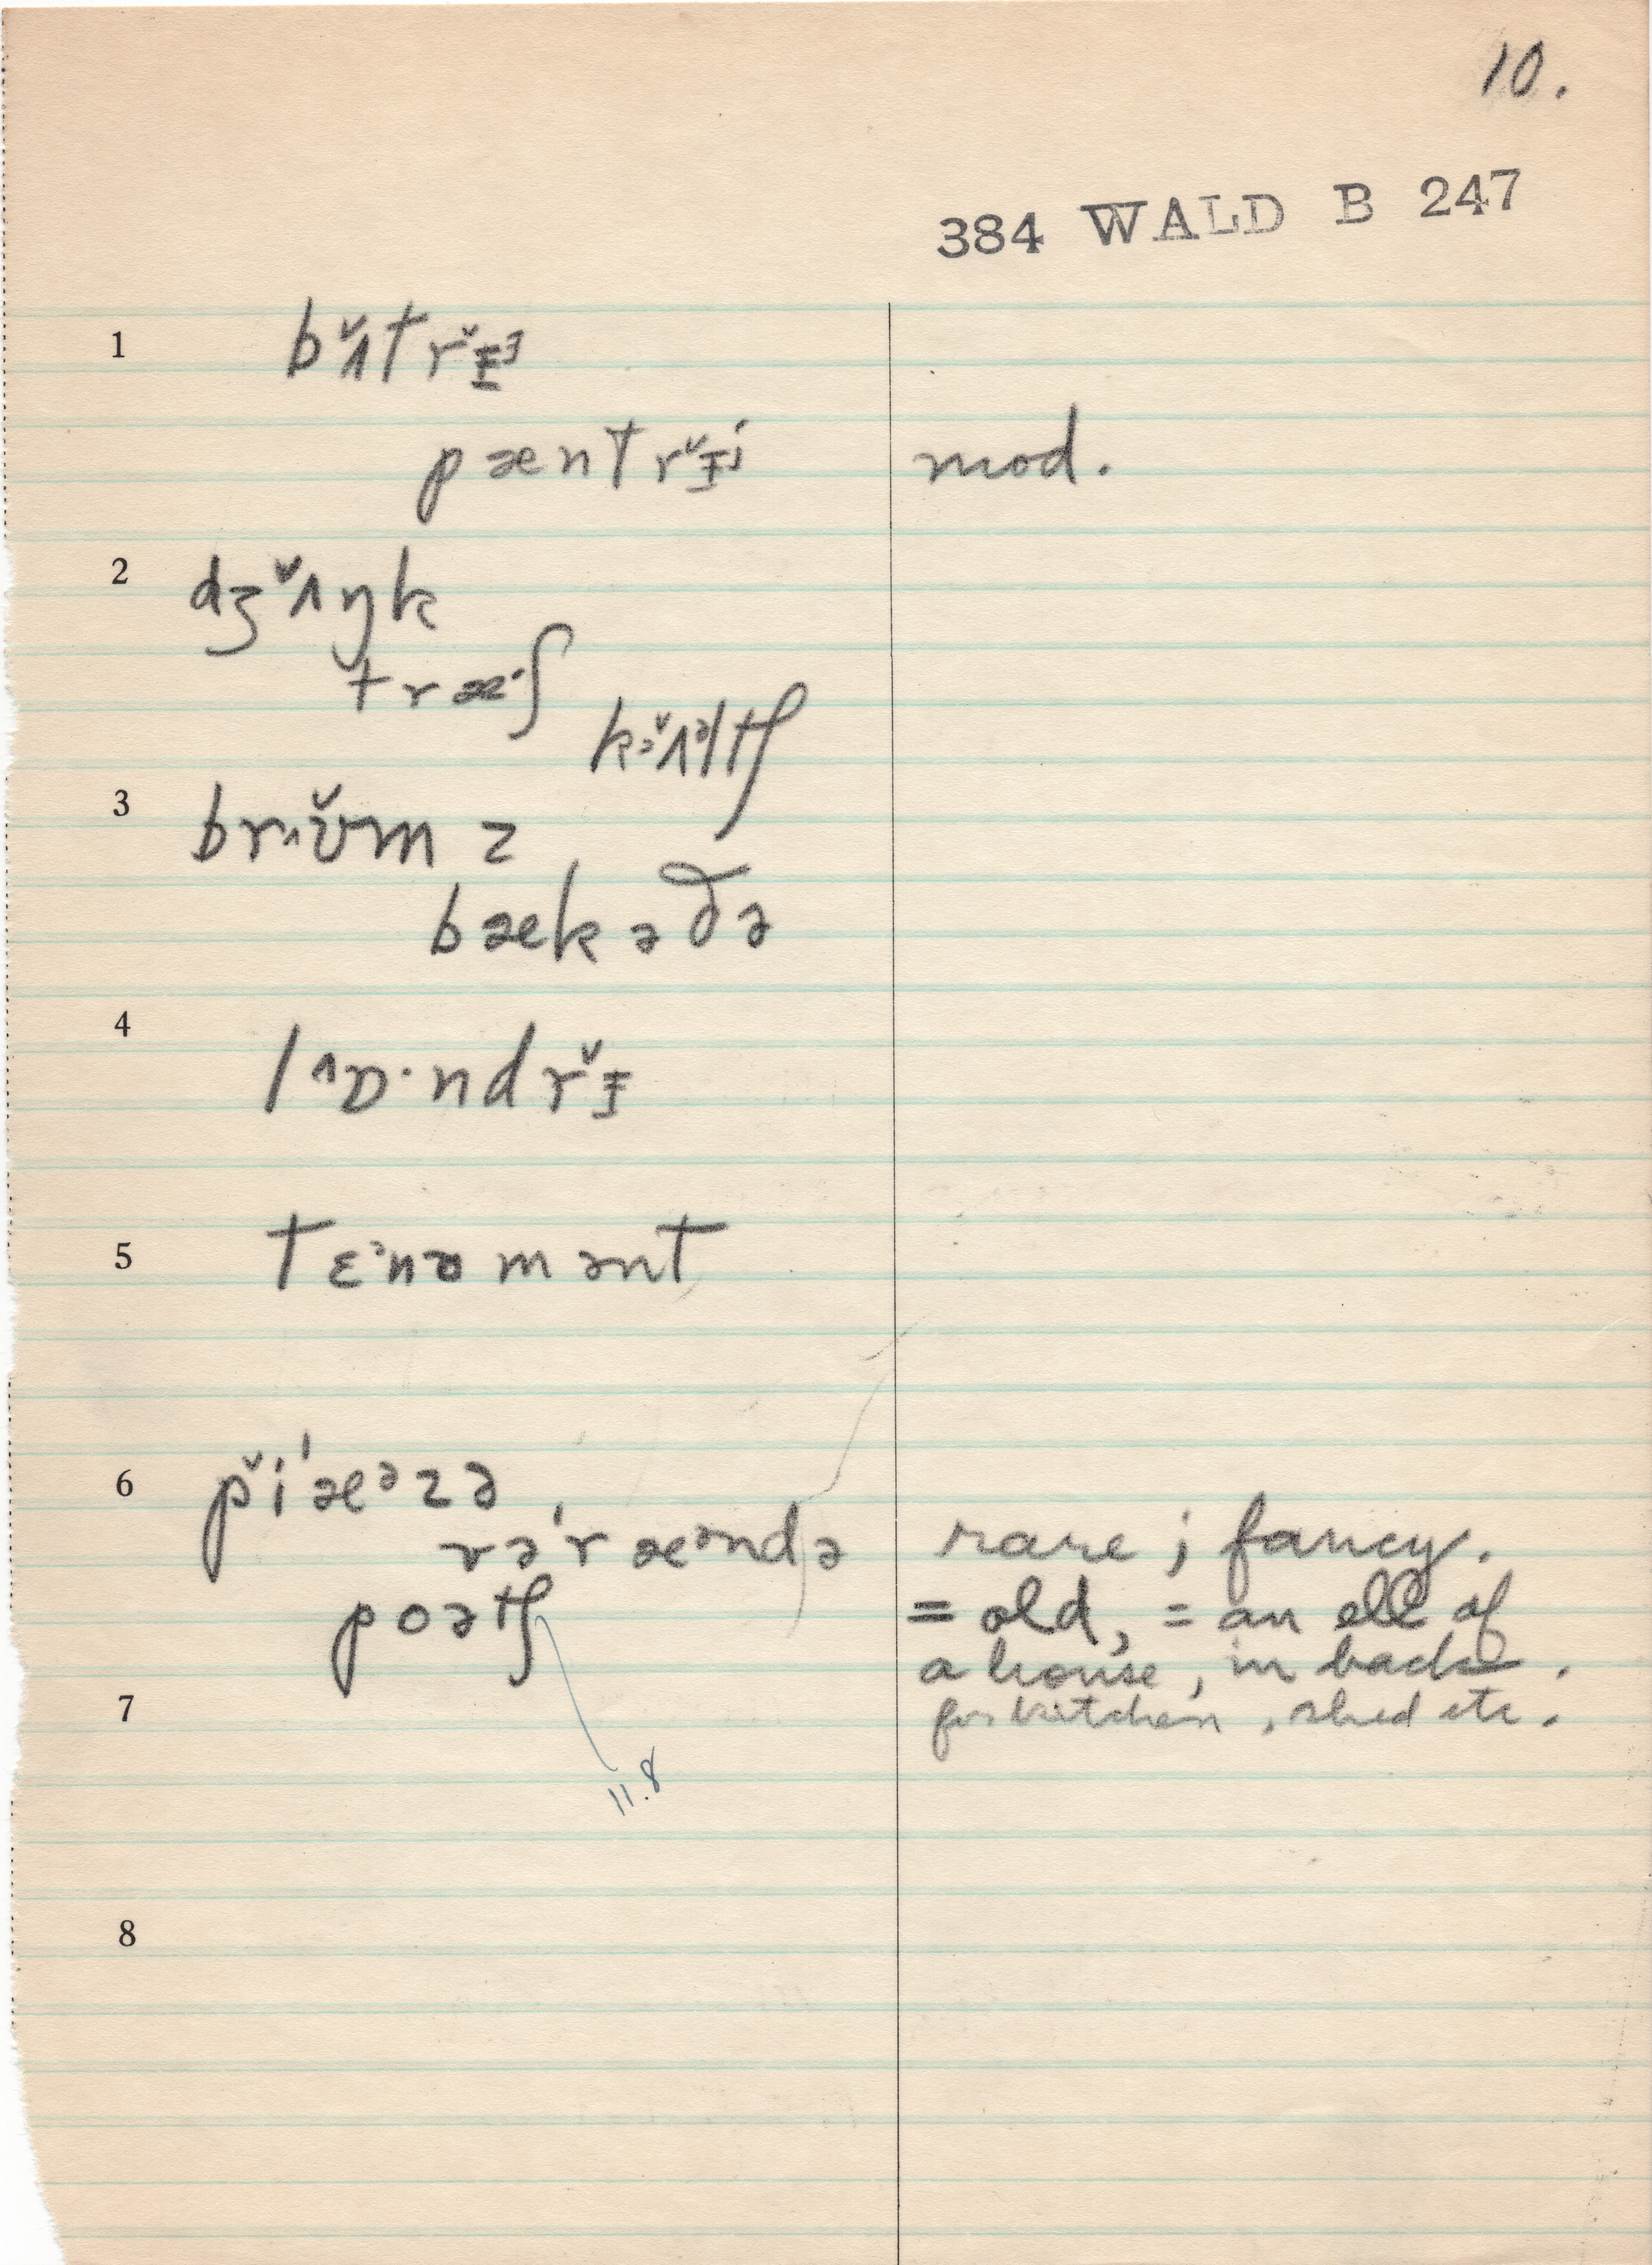 10.
384 WALD B 247
1 bʌ̆trɪ̆
pæntrɪ̆i mod.
2 dʒʌ̆ŋk
træ·ʃ
kɜʌ̆əltʃ
3 brʊ̆m z
bækəðə
4 lʌɒ·ndrɪ̆
5 tɛᵊnəmənt
6 pĭˈæᵊzə
vəˈræᵊndə rare; fancy.
poətʃ = old, = an ell of
a house, in back.
7 for kitchen, shed etc.
11.8
8